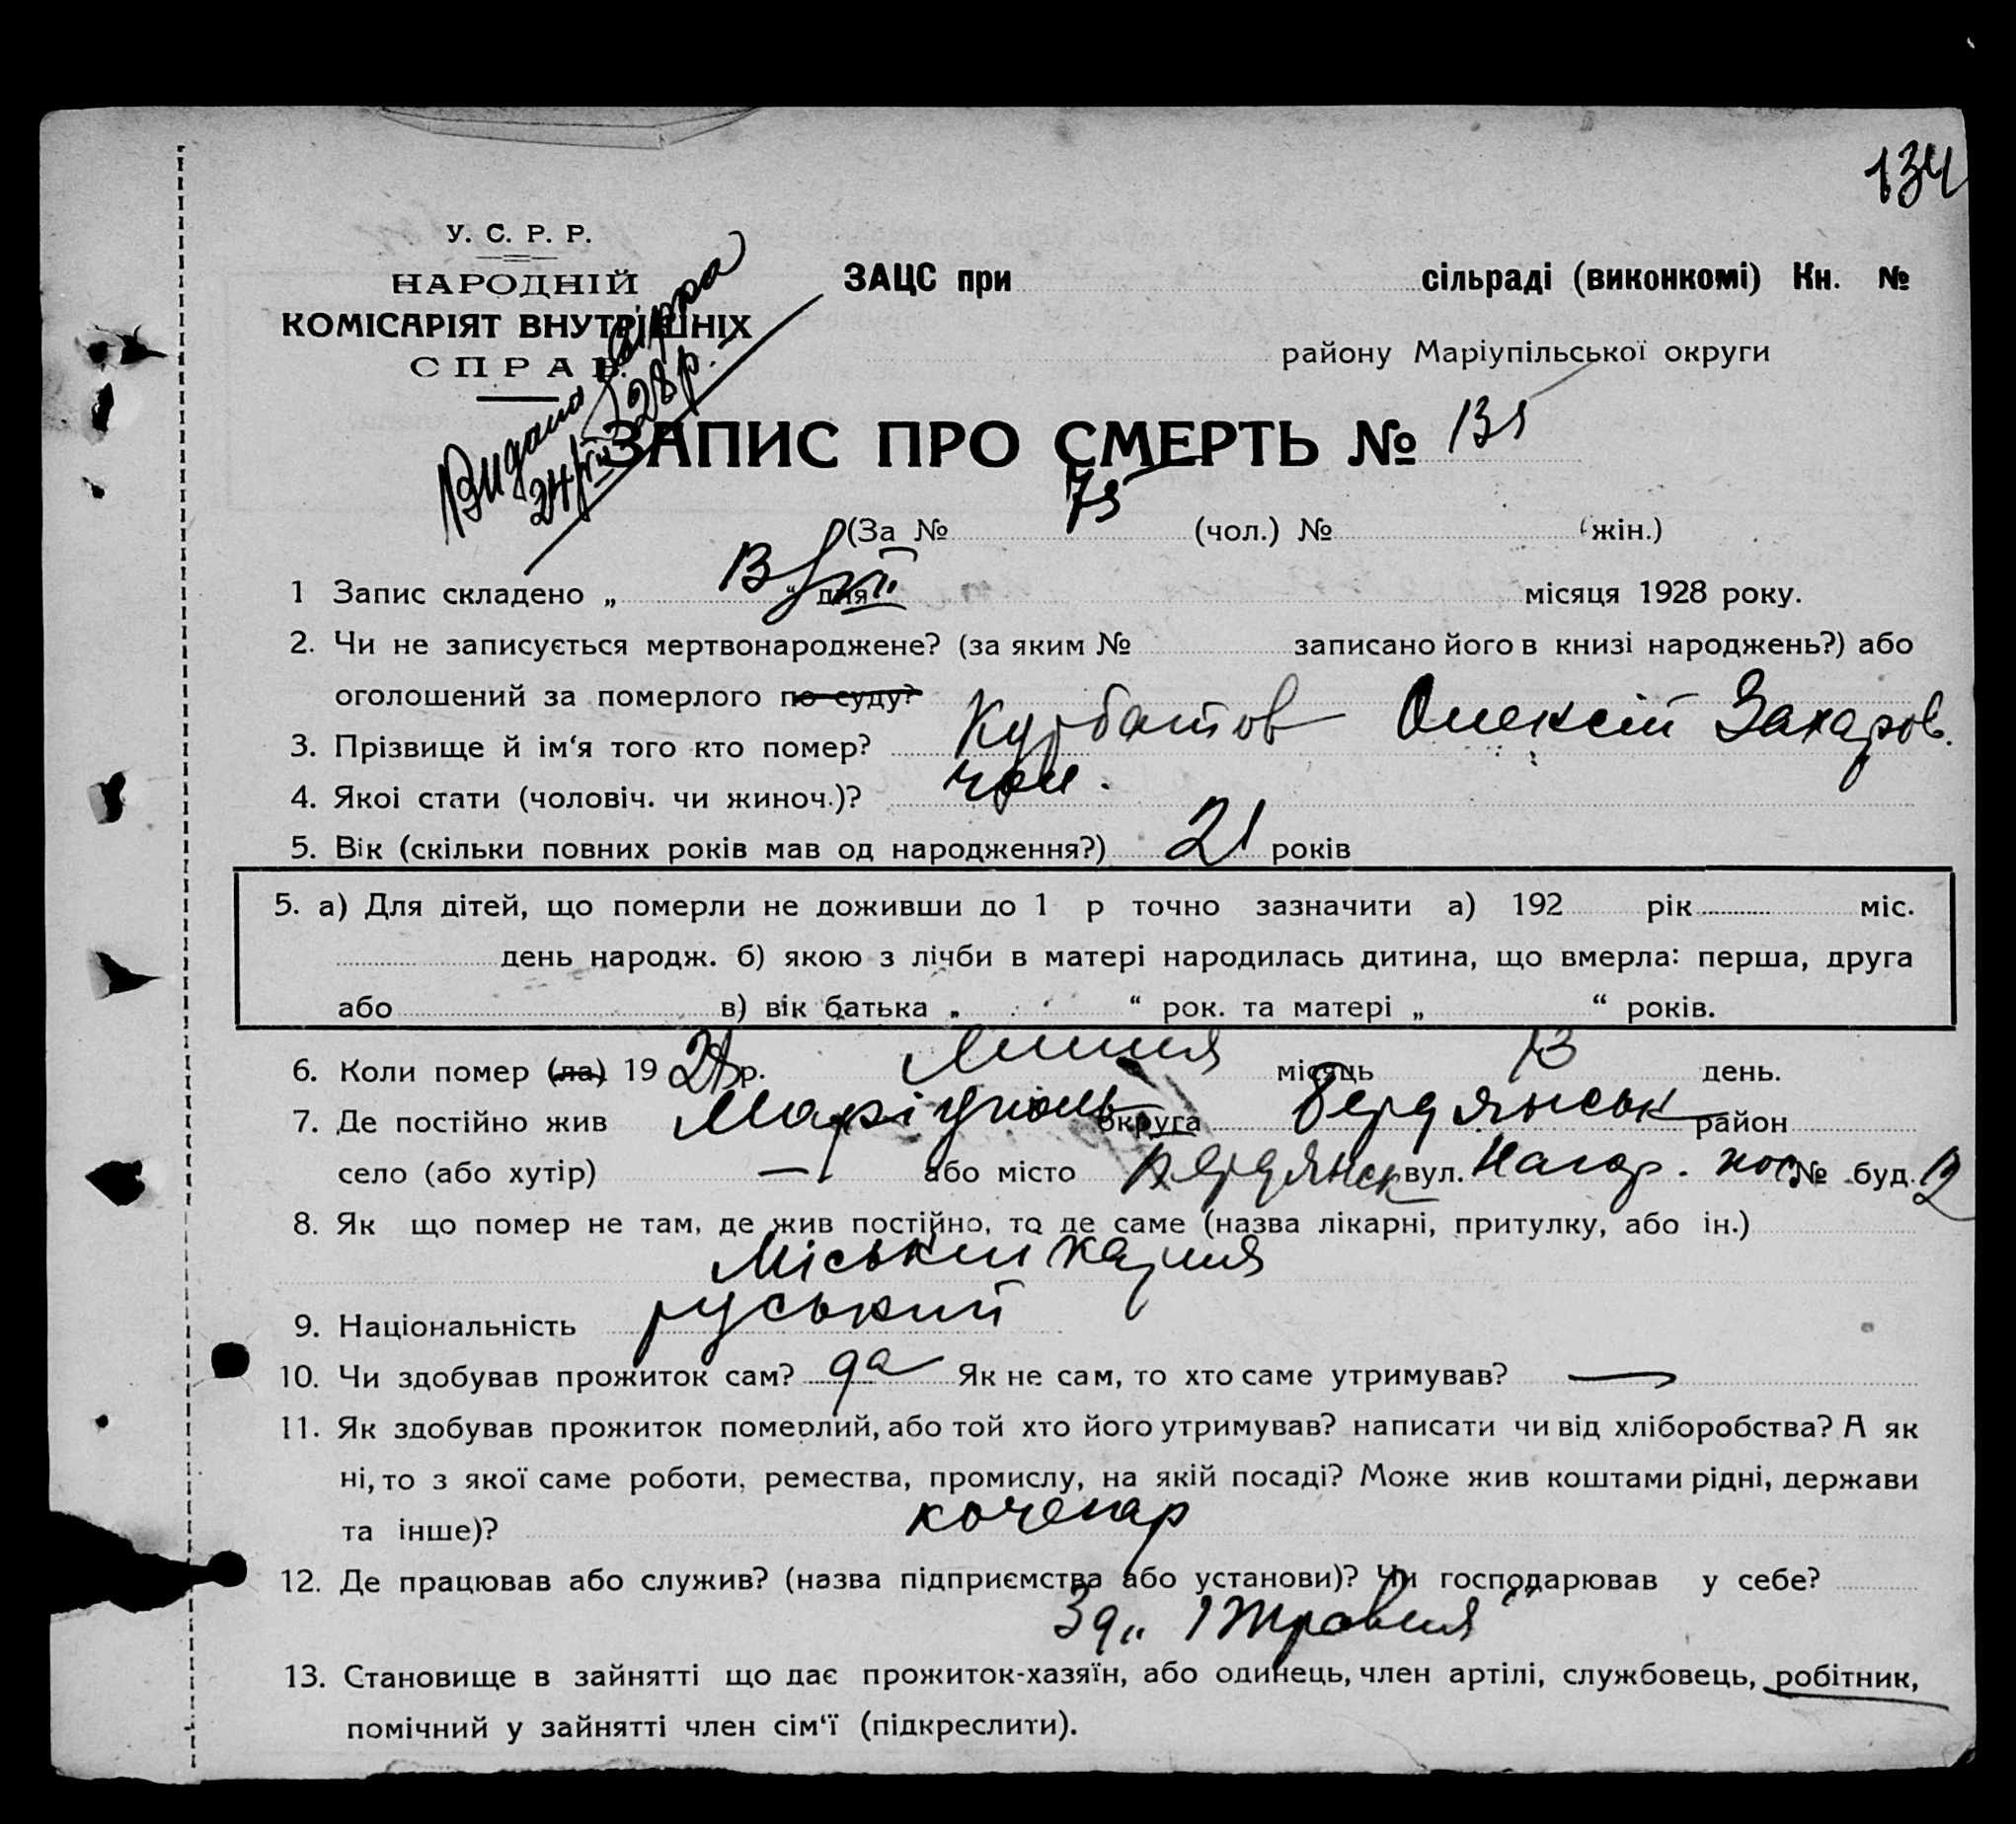 134
У. С. Р. Р.
НАРОДНІЙ
КОМІСАРІЯТ ВНУТРІШНІХ
СПРАВ.
Видано
28 р.
ЗАЦС при сільраді (виконкомі) Кн. №
району Маріупільської округи
ЗАПИС ПРО СМЕРТЬ № 135
(За № 75 (чол.) № (жін.)
1 Запис складено „ 13 “ дня VII місяця 1928 року.
2. Чи не записується мертвонароджене? (за яким № записано його в книзі народжень?) або
оголошений за померлого по суду?
3. Прізвище й ім‘я того кто помер? Курбатов Олексій Захаров.
4. Якоі стати (чоловіч. чи жиноч.)? чол.
5. Вік (скільки повних років мав од народження?) 21 років
5. а) Для дітей, що померли не доживши до 1 р точно зазначити а) 192 рік міс.
день народж. б) якою з лічби в матері народилась дитина, що вмерла: перша, друга
або в) вік батька „ “ рок. та матері „ “ років.
6. Коли помер (ла) 1928 р. Липня місяць 13 день.
7. Де постійно жив Маріуполь округа Бердянськ район
село (або хутір) — або місто Бердянск вул. Нагор. № буд. 12
8. Як що помер не там, де жив постійно, то де саме (назва лікарні, притулку, або ін.)
Міський
9. Національність руський
10. Чи здобував прожиток сам? да Як не сам, то хто саме утримував? —
11. Як здобував прожиток померлий, або той хто його утримував? написати чи від хліборобства? А як
ні, то з якої саме роботи, ремества, промислу, на якій посаді? Може жив коштами рідні, держави
та інше)? кочегар
12. Де працював або служив? (назва підприємства або установи)? Чи господарював у себе?
Зд „1 Травня“
13. Становище в зайнятті що дає прожиток-хазяїн, або одинець, член артілі, службовець, робітник,
помічний у зайнятті член сім‘ї (підкреслити).